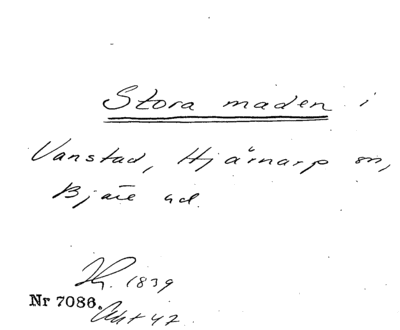 Stora maden i
Vanstad, Hjärnarp sn,
Bjäre hd.
1839
Nr 7086. Akt 47